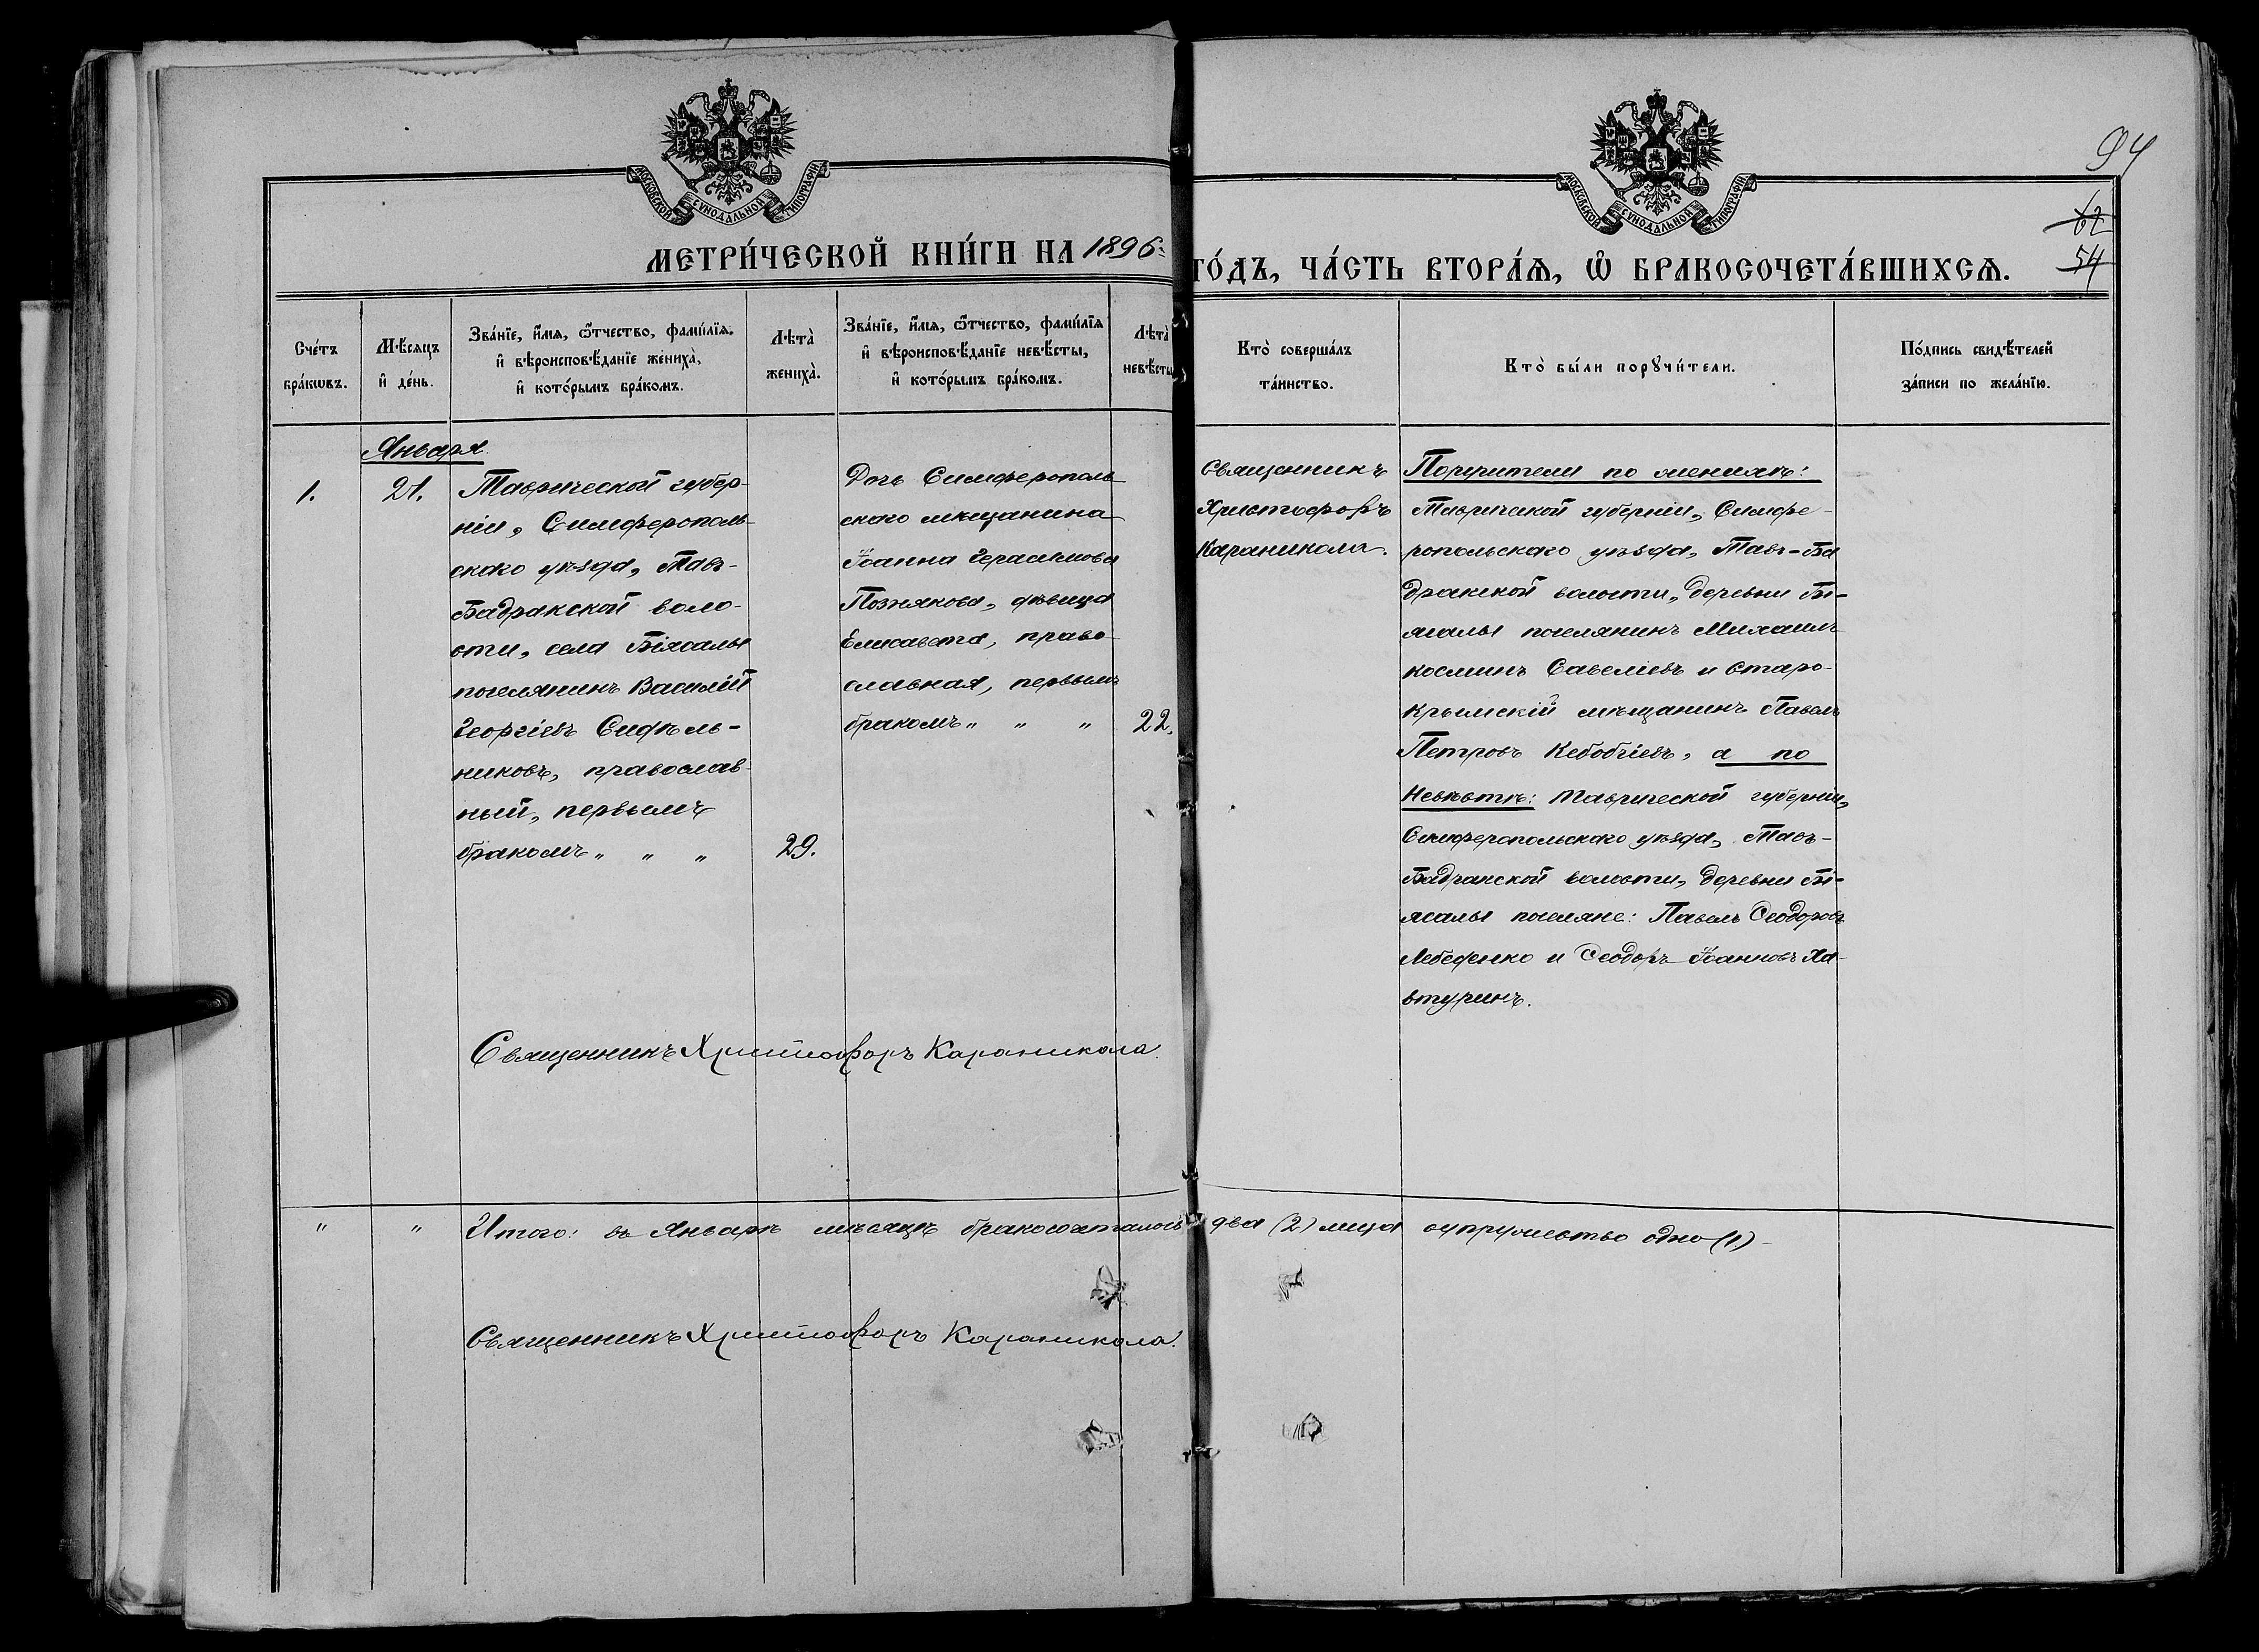 МОСКОВСКОЙ СУНОДАЛЬНОЙ ТИПОГРАФІИ
МОСКОВСКОЙ СУНОДАЛЬНОЙ ТИПОГРАФІИ
94
62
54
МЕТРИ́ЧЕСКОЙ КНИ́ГИ НА 1896
ГО́ДЪ, ЧА́СТЬ ВТОРА́Ѧ, Ѡ҆ БРАКОСОЧЕТА́ВШИХСѦ.
Сче́тъ бра́кѡвъ.
Мѣ́сяцъ и҆ де́нь.
Зва́нїе, и҆́мя, ѻ҆́тчество, фами́лїя и҆ вѣроисповѣ́данїе жениха̀, и҆ кото́рымъ бра́комъ.
Лѣта̀ жениха̀.
Зва́нїе, и҆́мя, ѻ҆́тчество, фами́лїя и҆ вѣроисповѣ́данїе невѣ́сты, и҆ кото́рымъ бра́комъ.
Лѣта̀ невѣ́сты
Кто̀ соверша́лъ та́инство.
Кто̀ бы́ли порꙋчи́тели.
По́дпись свидѣ́телей за́писи по жела́нїю.
Января
1.
21.
Таврической губер-
ніи, Симферополь-
скаго уѣзда, Тавъ-
Бадракской воло-
сти, села Біясалы
поселянинъ Василій
Георгіевъ Сидѣль-
никовъ, православ-
ный, первымъ
бракомъ " " "
29.
Дочь Симферополь-
скаго мѣщанина
Іоанна Герасимова
Познякова, дѣвица
Елисавета, право-
славная, первымъ
бракомъ " " "
22.
Священникъ
Христофоръ
Караникола.
Поручители по женихѣ:
Таврической губерніи, Симфе-
ропольскаго уѣзда, Тавъ-Ба
дракской волости, деревни Бі-
ясалы поселянинъ Михаилъ
Косминъ Савеліевъ и Старо-
Крымскій мѣщанинъ Павелъ
Петровъ Кебобчіевъ, а по
Невѣстѣ: Таврической губерніи,
Симферопольскаго уѣзда, Тавъ-
Бадракской волости, деревни Бі-
ясалы поселяне: Павелъ Ѳеодоровъ
Лебеденко и Ѳеодоръ Іоанновъ Ха-
втуринъ.
Священникъ Христофоръ Караникола.
" " Итого: въ Январѣ мѣсяцѣ бракосочеталось два (2) лица супружество одно (1.)
Священникъ Христофоръ Караникола.